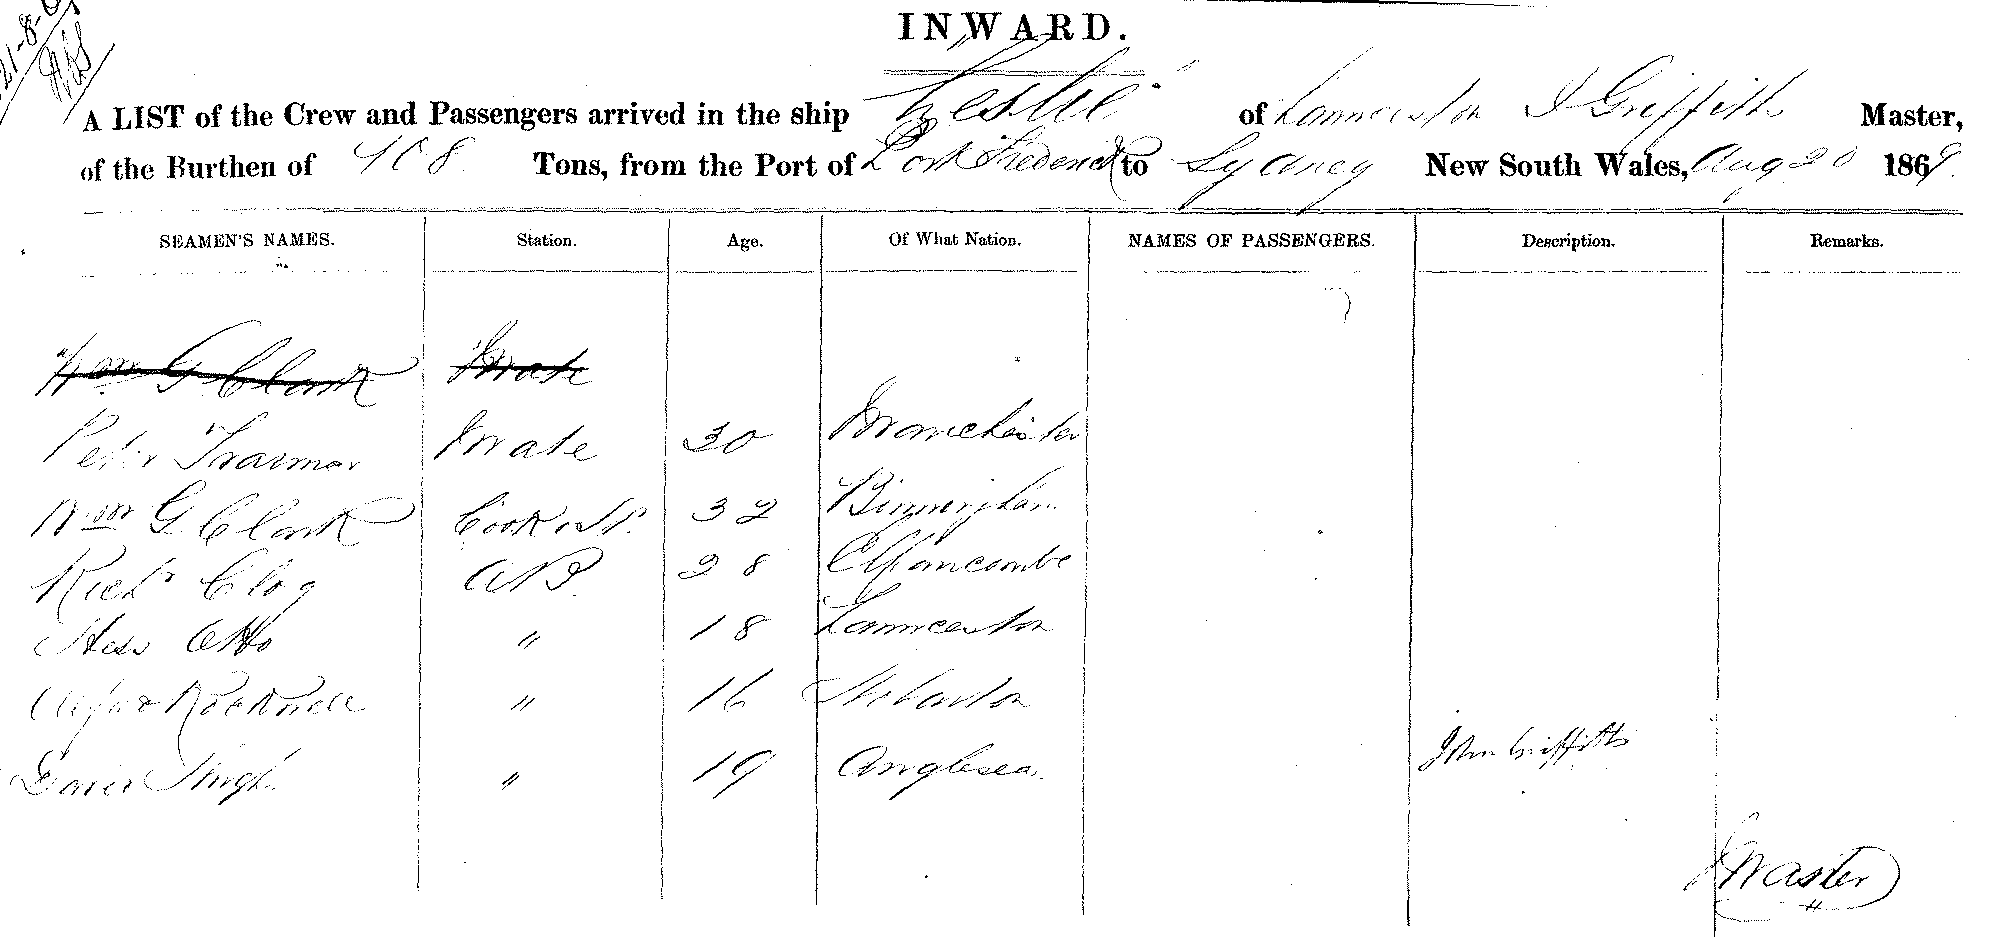 21-8-6
INWARD.
A LIST of the Crew and Passengers arrived in the ship "Leslie" of Launceston J Griffiths Master,
of the Burthen of 108 Tons, from the Port of Port Frederick to Sydney New South Wales, Aug 20 1869.
SEAMEN'S NAMES. Station. Age. Of What Nation. NAMES OF PASSENGERS. Description. Remarks.
Wm G Clark Mate
Peter Mate 30 Manchester
Wm G Clark Cook & St. 32 Birmingham
Richd Clog AB 28 Ilfrancombe
Otto " 18 Launceston
" 16 Hobarton
" 19 Anglesea
John Griffiths
Master